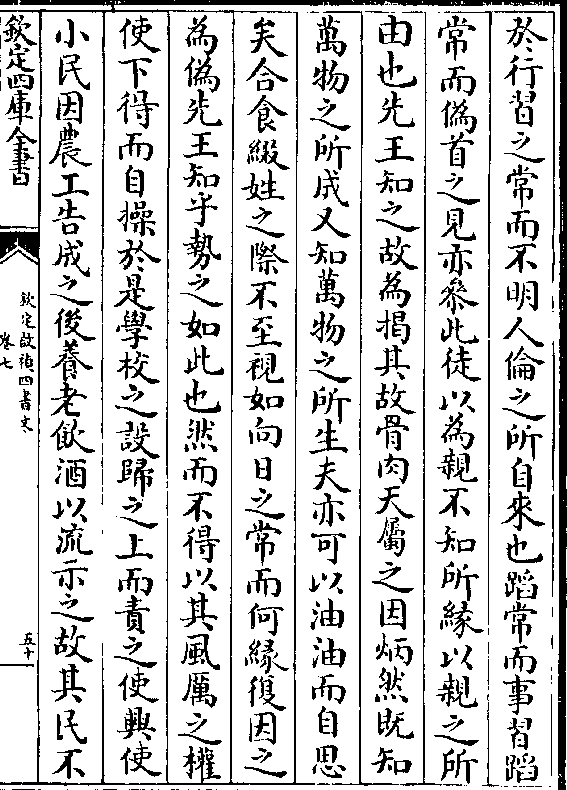 於行習之常而不明人倫之所自來也蹈常而事習蹈
常而偽首之見亦叅此徒以為親不知所緣以親之所
由也先王知之故為揭其故骨肉天屬之因炳然既知
萬物之所成又知萬物之所生夫亦可以油油而自思
矣合食綴姓之際不至視如向日之常而何緣復因之
為偽先王知乎勢之如此也然而不得以其風厲之權
使下得而自操於是學校之設歸之上而責之使興使
小民因農工告成之後養老飲酒以流示之故其民不
欽定四庫全書
欽定啟禎四書文
卷七
五十